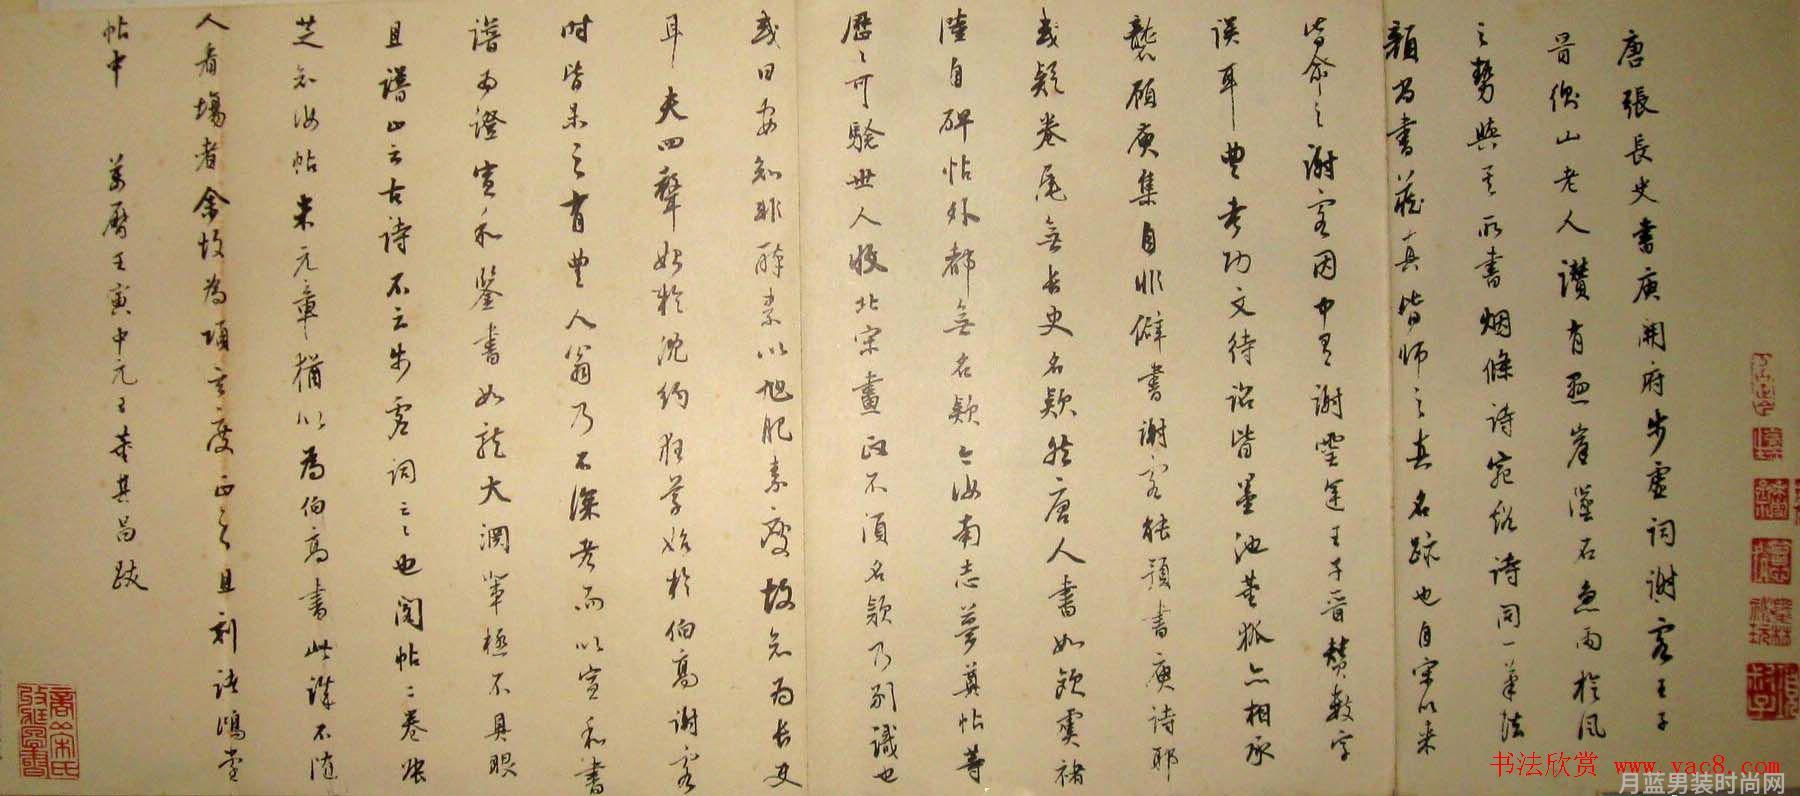 唐張長史書庾開府步虛詞謝客王子
晉衡山老人讚有懸崖墜石急雨於風
之勢與其所書烟條詩宛谿詩同一筆法
顏尚書藏真皆師之真名跡也自宋以來
皆命之謝客因中有謝靈運王子晉贊數字
誤耳豊考功文待詔皆墨池董狐亦相承
襲顧庾集自非僻書謝客能預書庾詩耶
或疑卷尾無長史名款然唐人書如歐虞褚
陸自碑帖外都無名款今汝南志夢奠帖等
歷歷可驗世人收北宋畫政不須名款乃別識也
或曰安知非醉素以旭肥素瘦故知為長史
耳夫四聲始於沈約狂草始於伯高謝客
時皆未之有豊人翁乃不深考而以宣和書
譜為證宣和鑒書如龍大淵輩極不具眼
且譜止云古詩不云步虛詞云云也閣帖二卷張
芝知汝帖米元章猶以為伯高書此誰不隨
人看場者余故為項玄度正之且刻諸鴻堂
帖中 萬曆壬寅中元日董其昌跋
书法欣赏 www.yac8.com
月蓝男装时尚网